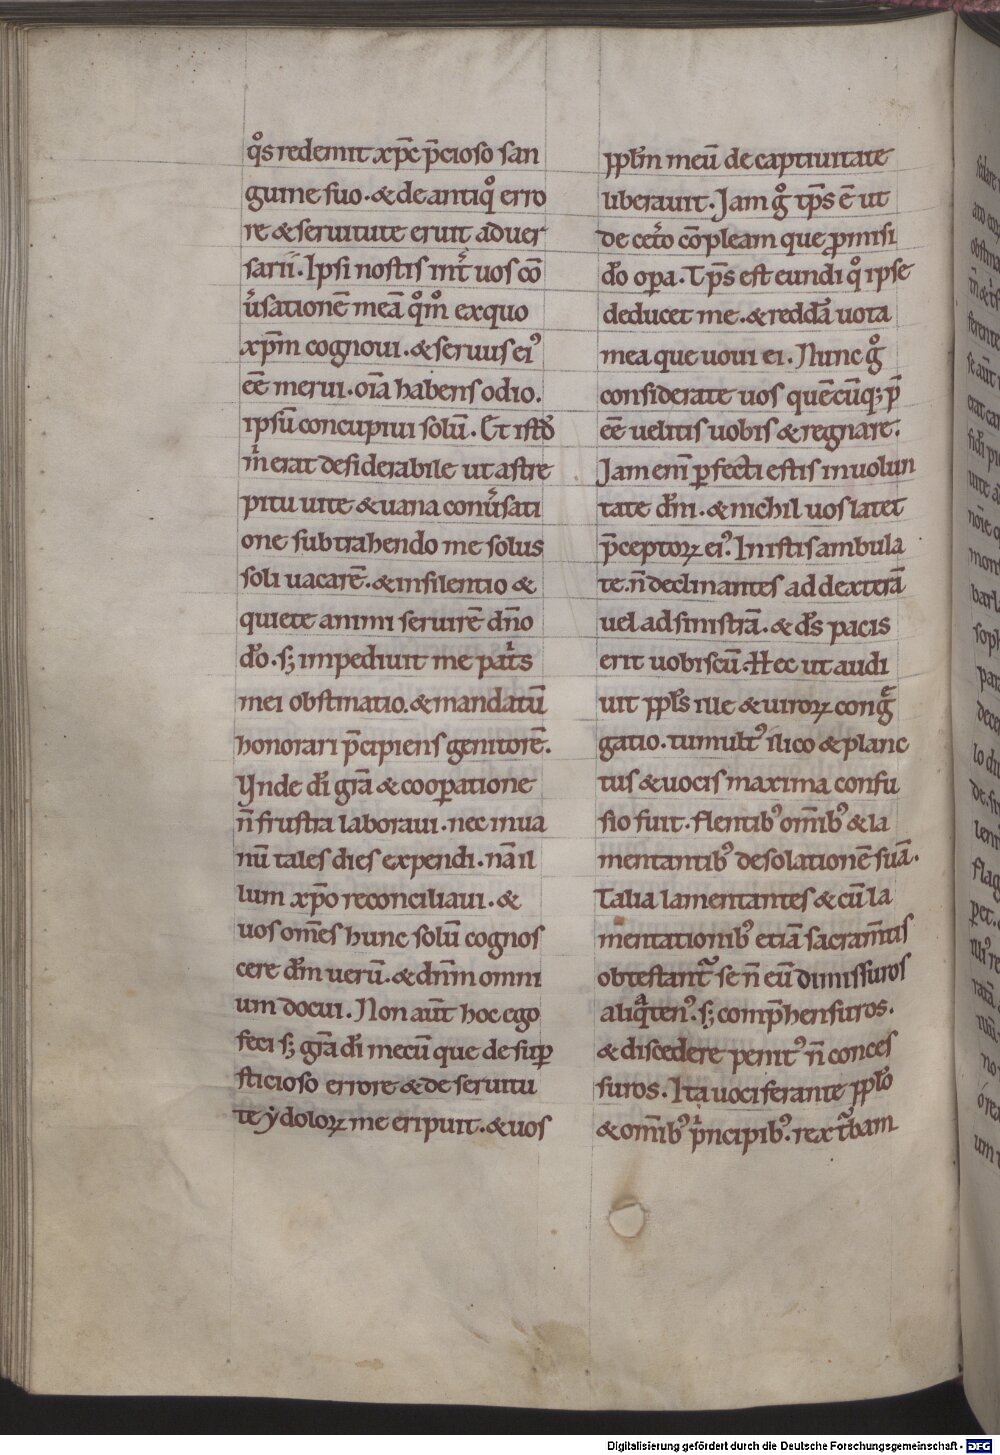 qͦs redemit xp̄c p̄cioso san
guine suo. & de antiqͦ erro
re & seruitute eruit aduer
sarii. Ipsi nostis int̄ uos cō
ūsationē meā qͦm̊ exquo
xp̄m cognoui. & seruus ei᾽
eē merui. oīa habens odio.
ipsū concupiui solū. Et istđ
m̄ erat desiderabile ut astre
pitu uite & uana conūsati
one subtrahendo me solus
soli uacarē. & insilentio &
quiete animi seruirē dn̄o
do̅. sꝫ impediuit me pat̄s
mei obstinatio. & mandatū
honorari p̄cipiens genitorē.
Vnde dī gr̄a & coop̱atione
n̄ frustra laboraui. nec inua
nū tales dies expendi. nā il
lum xp̄o reconciliaui. &
uos om̄es hunc solū cognos
cere dm̄ uerū. & dn̄m omni
um docui. Non aūt hoc ego
feci sꝫ gr̄a dī mecū que de sup̱
sticioso errore & de seruitu
te ẏdoloꝝ me eripuit. & uos
pplm̄ meū de captiuitate
liberauit. Jam gͦ tp̄s ē ut
de cet̄o cōpleam que ꝓmisi
do̅ op̱a. Tp̄s est eundi qͦ ipse
deducet me. & reddā uota
mea que uoui ei. Nunc gͦ
considerate uos quēcūqꝫ p̄
eē uelitis uobis & regnare.
Jam enī ꝑfecti estis in uolun
tate dn̄i. & nichil uos latet
p̄ceptoꝝ ei᾽. In istis ambula
te. n̄ declinantes ad dexterā
uel ad sinistrā. & ds̄ pacis
erit uobiscū. Hec ut audi
uit ppls̄ ille & uiroꝝ cong̅
gatio. tumult᾽ ilico & planc
tus & uocis maxima confu
sio fuit. flentib᾽ om̄ib᾽ & la
mentantib᾽ desolationē suā.
Talia lamentantes & cū la
mentationib᾽ etiā sacram̄tis
obtestant᷑ se n̄ eū dimissuros
aliqͣten᾽. sꝫ comp̄hensuros.
& discedere penit᾽ n̄ conces
suros. Ita uociferante pplo̅
& om̄ib᾽ pͥncipib᾽. rex tͬbam